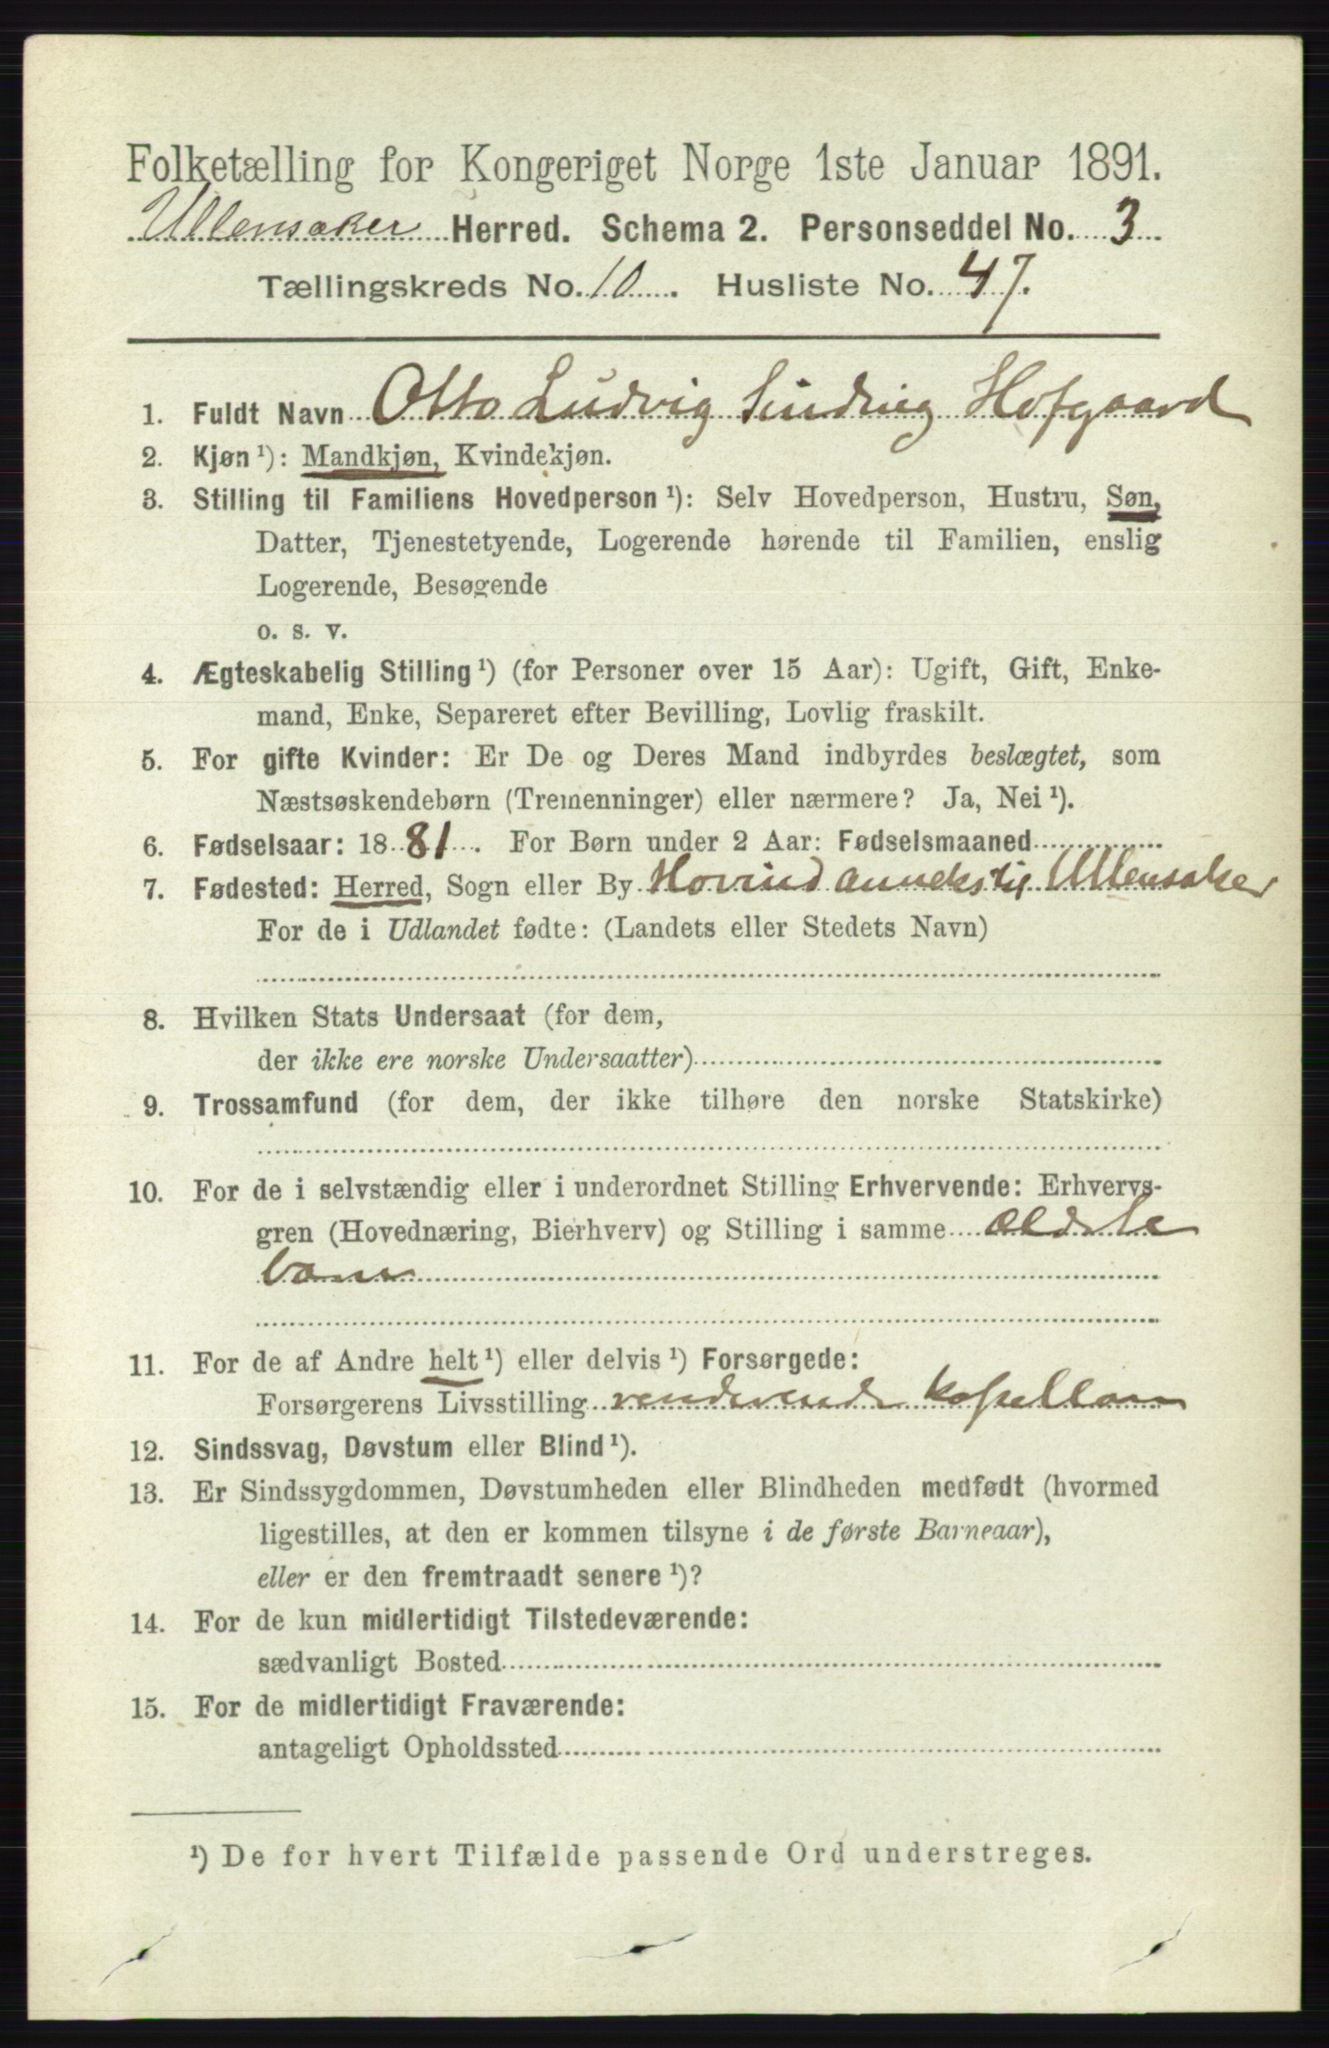 Folketælling for Kongeriget Norge 1ste Januar 1891.
Ullensaker Herred. Schema 2. Personseddel No. 3
Tællingskreds No. 10. Husliste No. 47.
1. Fuldt Navn Otto Ludvig Sinding Hofgaard
2. Kjøn ¹): Mandkjøn, Kvindekjøn.
3. Stilling til Familiens Hovedperson ¹): Selv Hovedperson, Hustru, Søn,
Datter, Tjenestetyende, Logerende hørende til Familien, enslig
Logerende, Besøgende
o. s. v.
4. Ægteskabelig Stilling ¹) (for Personer over 15 Aar): Ugift, Gift, Enke-
mand, Enke, Separeret efter Bevilling, Lovlig fraskilt.
5. For gifte Kvinder: Er De og Deres Mand indbyrdes beslægtet, som
Næstsøskendebørn (Tremenninger) eller nærmere? Ja, Nei ¹).
6. Fødselsaar: 1881. For Børn under 2 Aar: Fødselsmaaned
7. Fødested: Herred, Sogn eller By Hovind annekstil Ullensaker
For de i Udlandet fødte: (Landets eller Stedets Navn)
8. Hvilken Stats Undersaat (for dem,
der ikke ere norske Undersaatter)
9. Trossamfund (for dem, der ikke tilhøre den norske Statskirke)
10. For de i selvstændig eller i underordnet Stilling Erhvervende: Erhvervs-
gren (Hovednæring, Bierhverv) og Stilling i samme ældste
barn
11. For de af Andre helt ¹) eller delvis ¹) Forsørgede:
Forsørgerens Livsstilling kapellan
12. Sindssvag, Døvstum eller Blind ¹).
13. Er Sindssygdommen, Døvstumheden eller Blindheden medfødt (hvormed
ligestilles, at den er kommen tilsyne i de første Barneaar),
eller er den fremtraadt senere ¹)?
14. For de kun midlertidigt Tilstedeværende:
sædvanligt Bosted
15. For de midlertidigt Fraværende:
antageligt Opholdssted
¹) De for hvert Tilfælde passende Ord understreges.